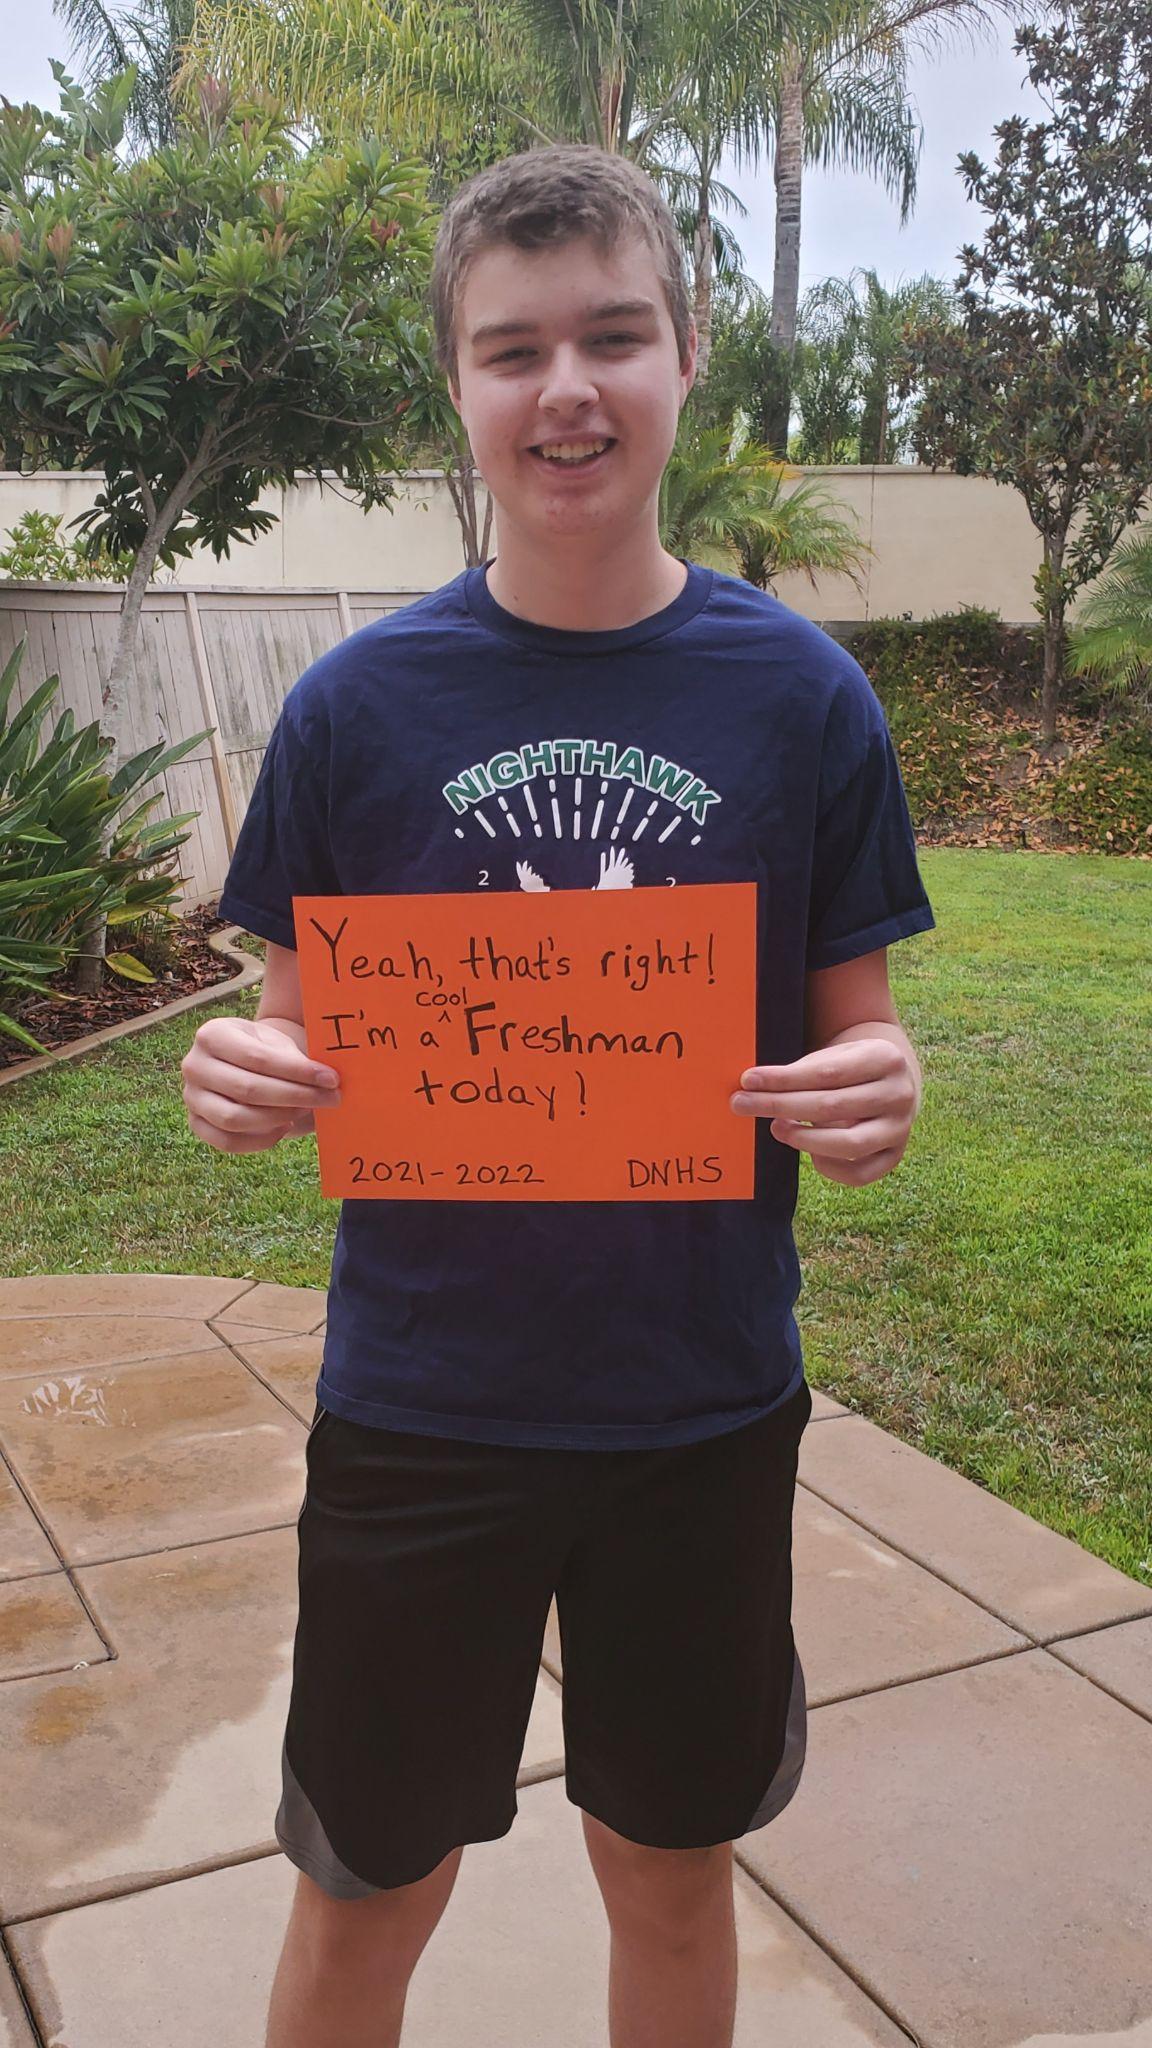 NIGHTHAWK
2 2
Yeah, that's right!
cool
I'm a ^ Freshman
today!
2021-2022 DNHS